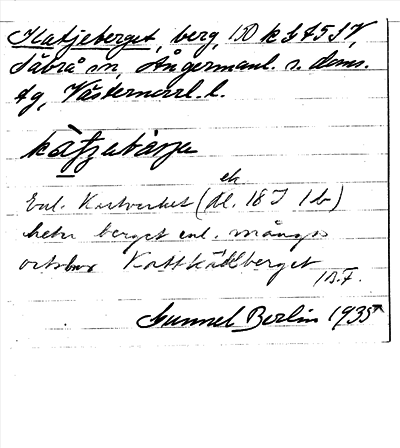 Katjeberget, berg, 150 k
Säbrå sn, Ångermanl. s. doms.
tg, Västernorrl. l.
kàtjebärje
Enl. Kartverket (ek. bl. 18 J 1 b)
heter berget enl. många
ortsbor Kattkätlberget
/B.F.
Gunnel Berlin 1935